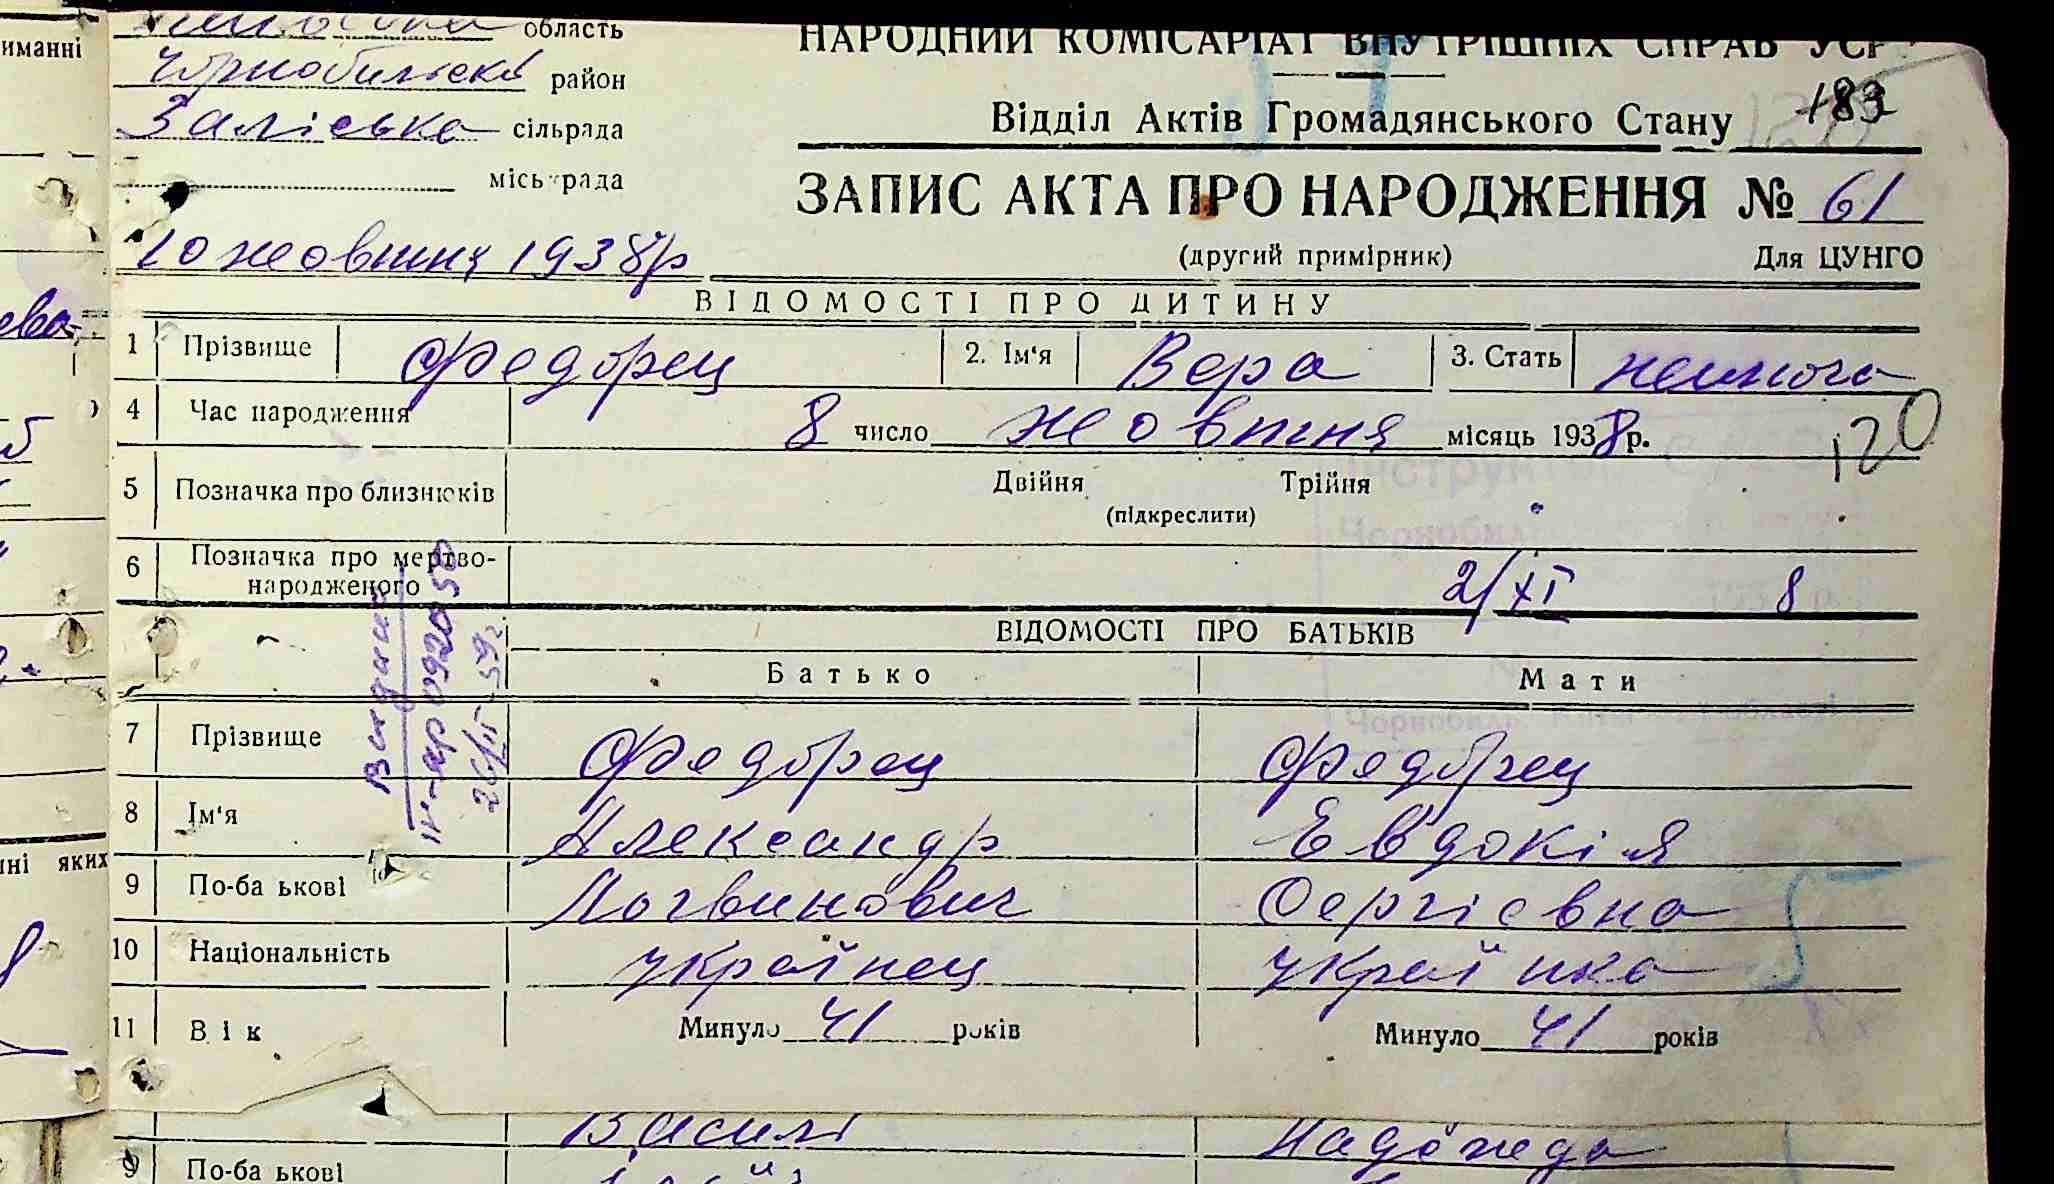 иманні
область
НАРОДНИЙ КОМІСАРІАТ ВНУТРІШНІХ СПРАВ УСР
Чорнобильськ район
183
Заліська сільрада
Відділ Актів Громадянського Стану
міськрада
ЗАПИС АКТА ПРО НАРОДЖЕННЯ № 61
10 жовтня 1938 р
(другий примірник) Для ЦУНГО
ВІДОМОСТІ ПРО ДИТИНУ
1 Прізвище Федорец 2. Ім‘я Вера 3. Стать женмога
4 Час народження 8 число жовтня місяць 1938 р.
120
5 Позначка про близнюків Двійня Трійня
(підкреслити)
6 Позначка про мертво-
народженого
2/XI 8
ВІДОМОСТІ ПРО БАТЬКІВ
Батько Мати
7 Прізвище Федорец Федорец
8 Ім‘я Александр Евдокія
9 По-ба ькові Логвинович Сергієвна
10 Національність українец українка
11 Вік Минуло 41 років Минуло 41 років
ні яких
Василі Надежда
9 По-ба ькові